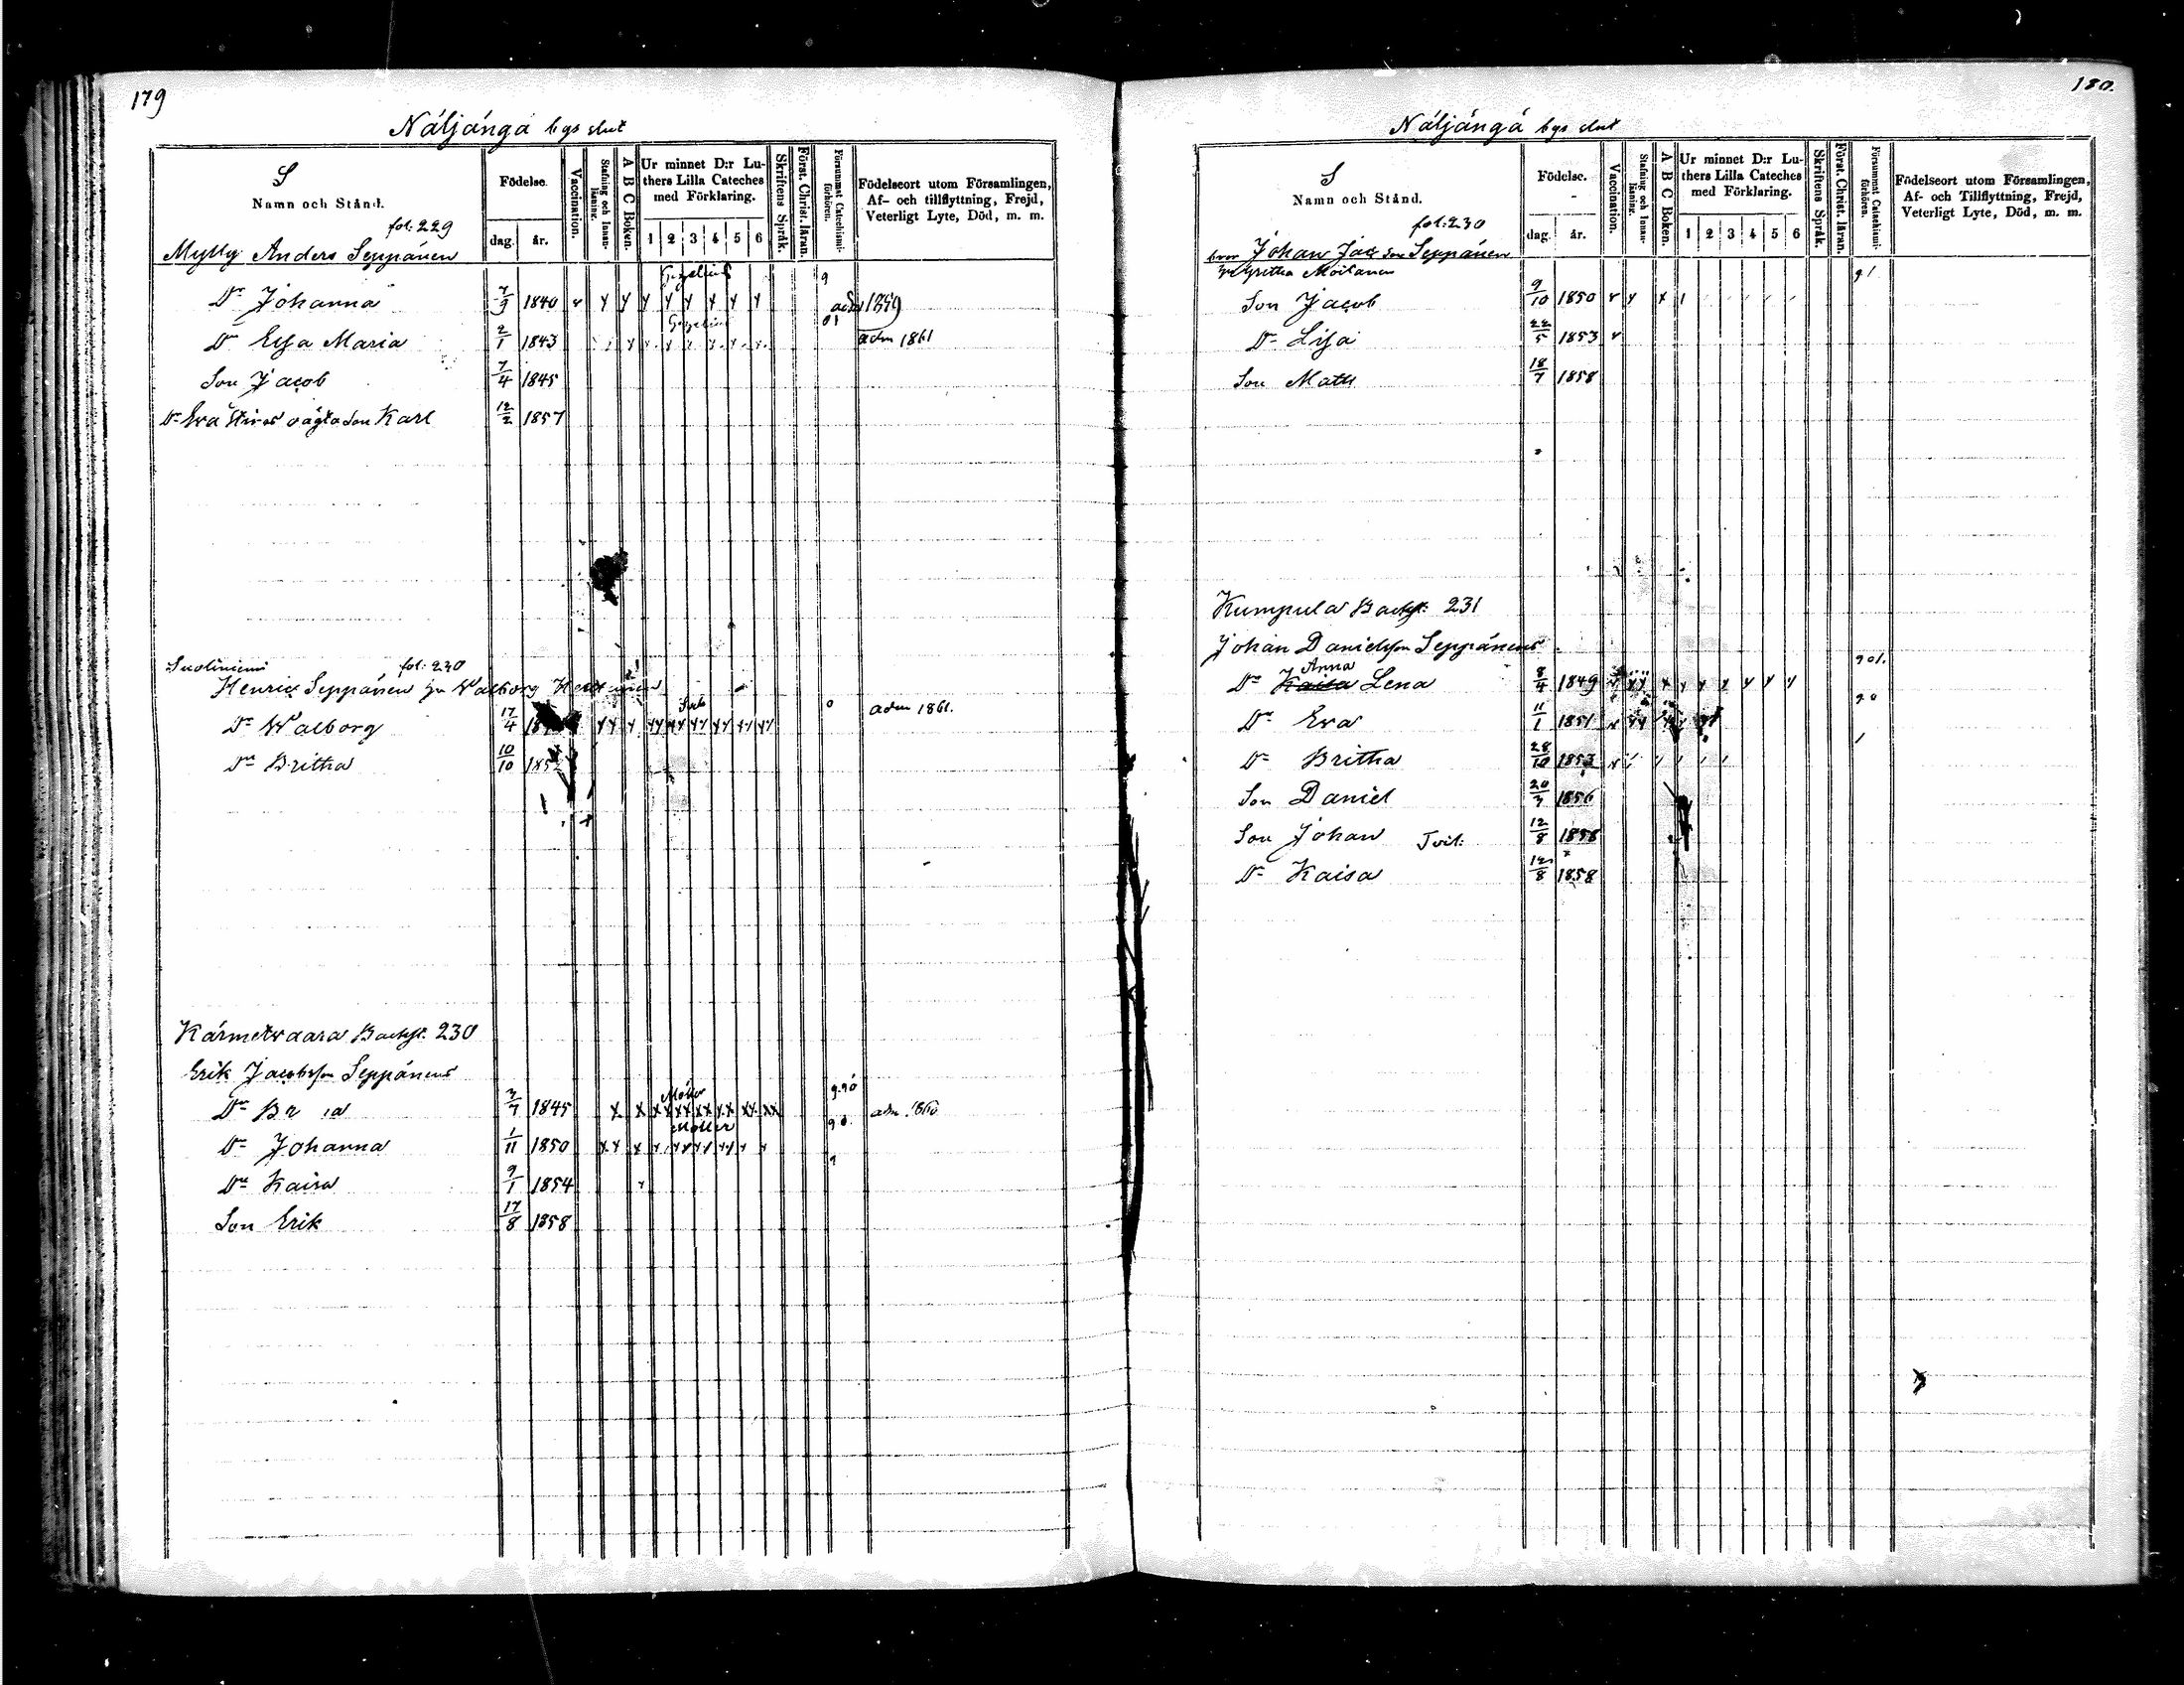 179
Näljängä bys slut
S
Namn och Stånd.
Födelse.
dag. år.
Vaccination.
Stafning och Innan-läsning.
A B C Boken.
Ur minnet D:r Lu-
thers Lilla Cateches
med Förklaring.
1 2 3 4 5 6
Skriftens Språk.
Först. Christ. läran.
Försummat Catechismi-förhören.
Födelseort utom Församlingen,
Af- och tillflyttning, Frejd,
Veterligt Lyte, Död, m. m.
fol: 229
Mylly Anders Seppänen
Gezelius 9
Dr Johanna 7/9 1840 adm 1859
Gezelius
Dr Elsa Maria 2/1 1843 adm 1861
Son Jacob 7/4 1845
Dr Eva oägta Son Karl 12/2 1857
Suoliniemi fol: 230
Henric Seppänen Walborg
Dr Walborg 17/4 adm 1861.
Dr Britha 10/10
Kärmetvaara Backst: 230
Erik Jacobsson Seppänens
Dr 3/7 1845 adm 1860
Möller
Dr Johanna 1/11 1850
Dr Kaisa 9/1 1854
Son Erik 17/8 1858
180.
Näljängä bys slut
S
Namn och Stånd.
Födelse.
dag. år.
Vaccination.
Stafning och Innan-läsning.
A B C Boken.
Ur minnet D:r Lu-
thers Lilla Cateches
med Förklaring.
1 2 3 4 5 6
Skriftens Språk.
Först. Christ. läran.
Försummat Catechismi-förhören.
Födelseort utom Församlingen,
Af- och Tillflyttning, Frejd,
Veterligt Lyte, Död, m. m.
fol: 230
bror Johan Jac Son Seppänen
Britha Moilanen 91
Son Jacob 9/10 1850
Dr Lisa 22/5 1853
Son Matts 18/7 1858
Kumpula Backst: 231
Johan Danielsson Seppänens
Anna 901.
Dr Kaisa Lena 8/4 1849
90
Dr Eva 11/1 1851
Dr Britha 28/10 1853
Son Daniel 20/3 1856
Son Johan Tvil: 12/8 1858
Dr Kaisa 12/8 1858